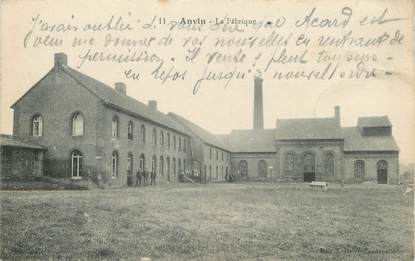 11 Anvin - La Fabrique
J'ai oublié de vous dire que Acard est
venu me donner de vos nouvelles en rentrant de
permission. Il vente & pleut toujours
en repos jusqu'à nouvel ordre
Edit.